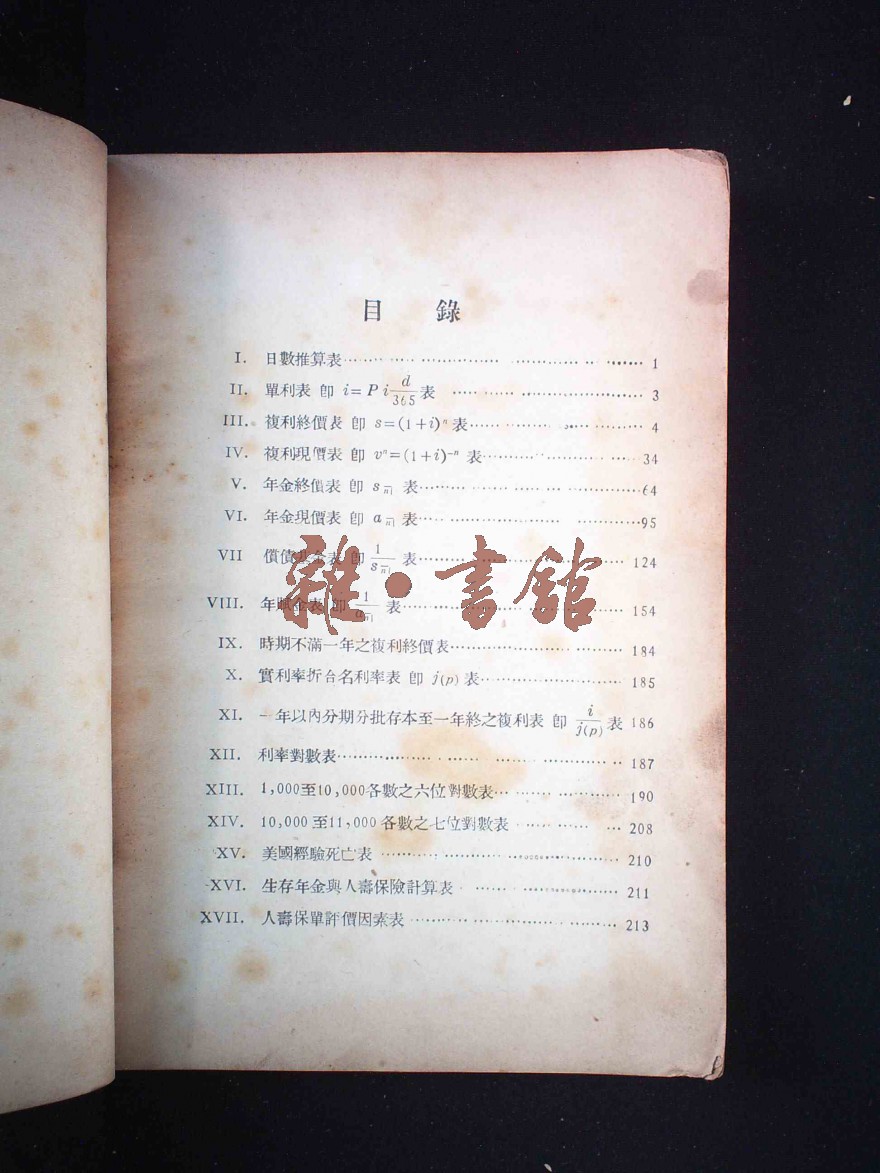 目 錄
I. 日數推算表 1
II. 單利表 卽 i=Pi d/365 表 3
III. 複利終價表 卽 s=(1+i)ⁿ 表 4
IV. 複利現價表 卽 vⁿ=(1+i)⁻ⁿ 表 34
V. 年金終價表 卽 s n̅| 表 64
VI. 年金現價表 卽 a n̅| 表 95
VII 償債基金表 卽 1/s n̅| 表 124
VIII. 年賦金表 卽 1/a n̅| 表 154
雜·書館
IX. 時期不滿一年之複利終價表 184
X. 實利率折合名利率表 卽 j(p) 表 185
XI. 一年以內分期分批存本至一年終之複利表 卽 i/j(p) 表 186
XII. 利率對數表 187
XIII. 1,000至10,000各數之六位對數表 190
XIV. 10,000至11,000各數之七位對數表 208
XV. 美國經驗死亡表 210
XVI. 生存年金與人壽保險計算表 211
XVII. 人壽保單評價因素表 213